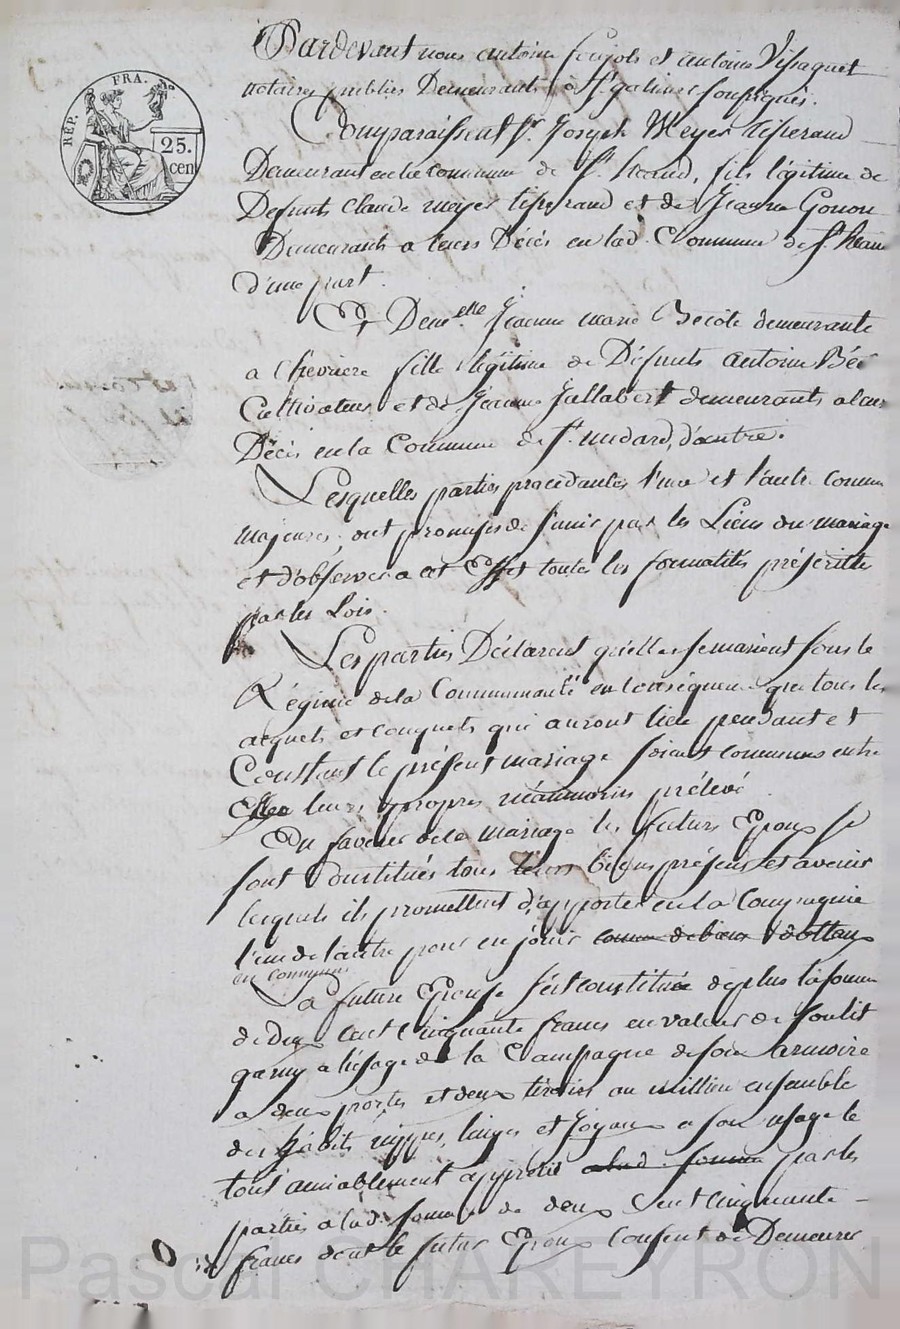 RÉP. FRA.
25. cen
Pardevant nous antoine fenjols et antoine Vissaguet
notaires publics Demeurants à St galmier soussignés.
Comparaissent Sr. Joseph Meyer tisserand
Demeurant en lie commune de St. heand, fils légitime de
Defunts Claude meyer tisserand et de Jeanne Gonon
Demeurants a leurs Décés en lad. Commune de St hean
d'une part.
Et Demelle Jeanne marie Becote demeurante
a Chevriere fille légitime de Défunts antoine Béc
Cultivateur et de Jeanne Jallabert demeurants a leur
Décés en la Commune de St. médard, d'autre.
Lesquelles parties procédantes l'une et l'autre comme
majeures, ont promises de s'unir par les Liens du mariage
et d'observer a cet Effet toutes les formalités préscritte
par les Lois.
Les parties Déclarent qu'elles se marient sous le
Régime de la Communauté en conséquence que tous les
acquets et conquets qui auront lieu pendant et
Constant le présent mariage soient communs entre
Elles leurs propres néanmoins prélevé
En faveur de ce mariage les futurs Epoux se
sont Constitués tous leurs biens présens et avenir
lesquels ils promettent d'apporter en la Compagnie
l'un de l'autre pour en jouir comme de biens dottaux
en commun
La future Epouse s'est constituée de plus la somme
de deux cent Cinquante francs en valeur de son lit
garny a l'usage de la Campagne de son armoire
a deux portes et deux tiroirs au millieu ensemble
des habits nippes, linges et Joyaux a son usage le
tout amiablement apprécié a lad. somme par les
parties a lad. somme de deux Cent Cinquante
francs dont le futur Epoux Consent de Demeurer
Pascal CHAREYRON